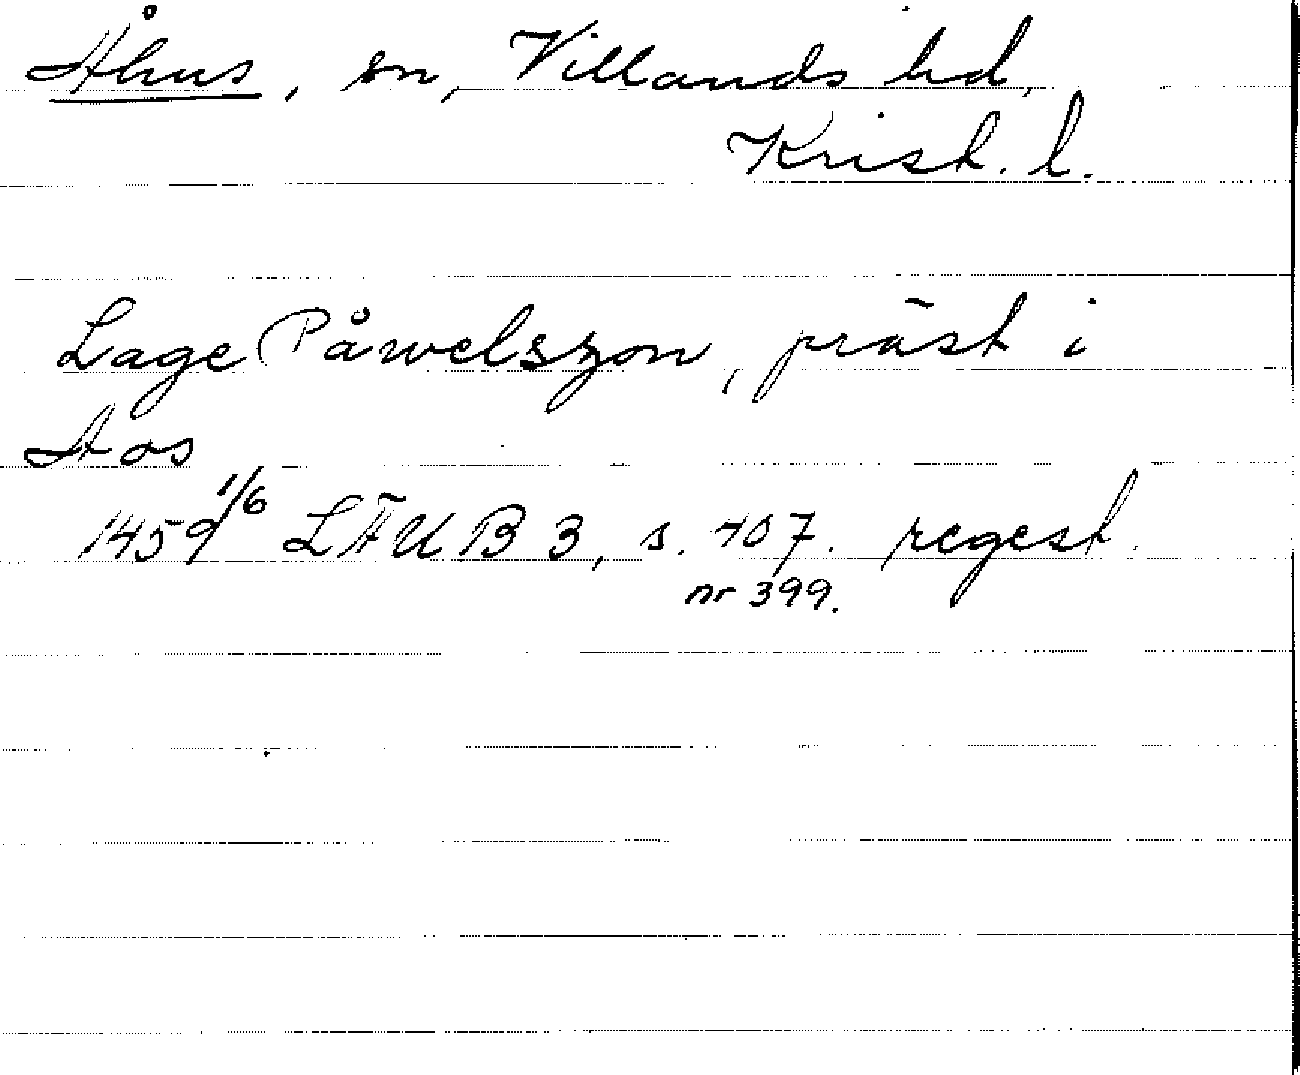 Åhus, sn, Villands hd,
Krist. l.
Lage Påwelszon, präst i
Aos
1459 1/6 LÄUB 3, s. 407. regest.
nr 399.